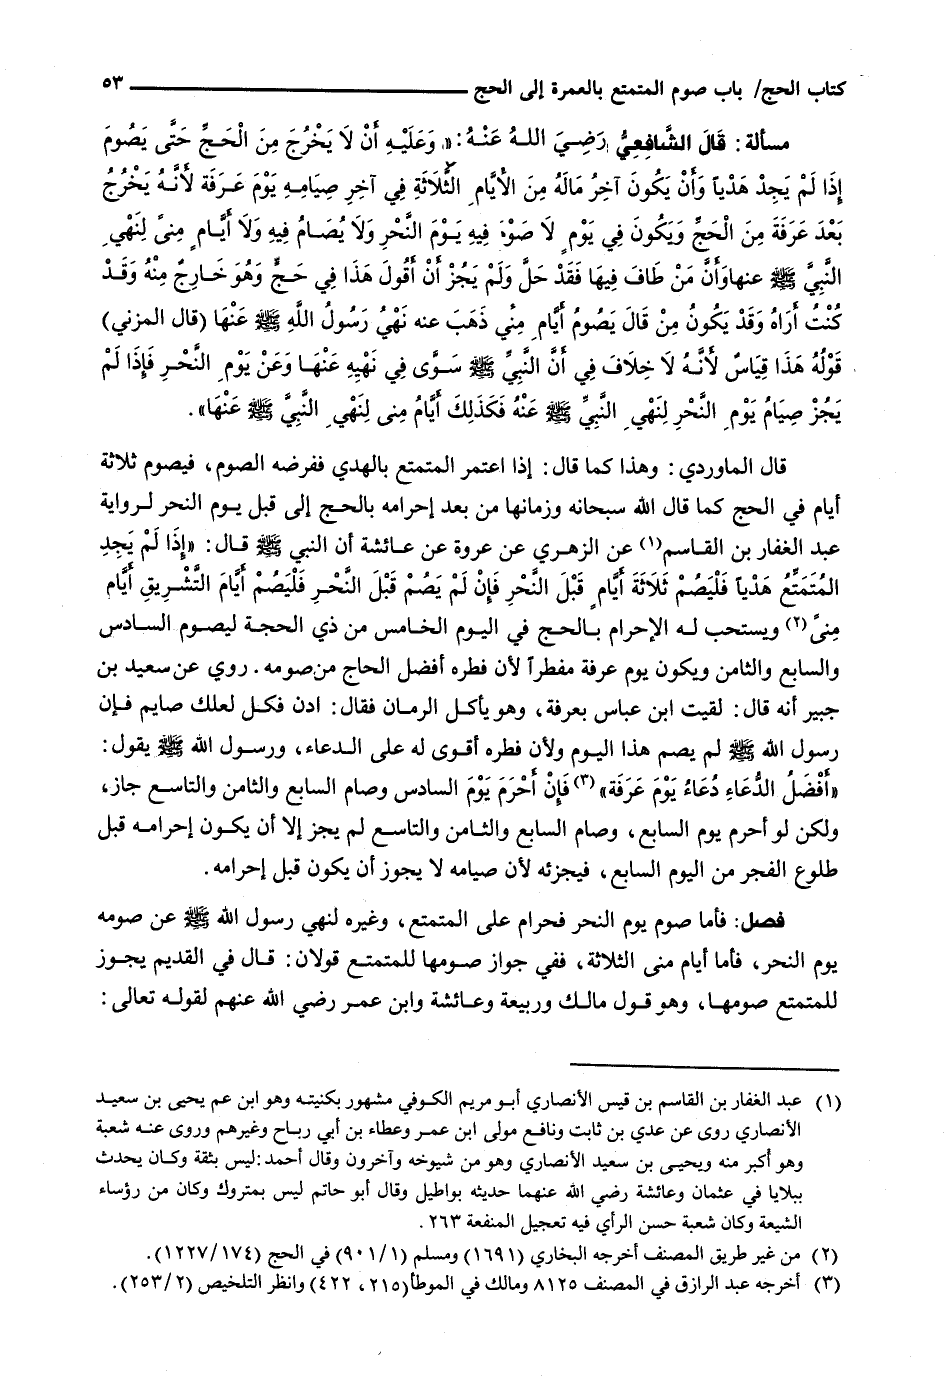 كتاب الحج/ باب صوم المتمتع بالعمرة إلى الحج ٥٣
مسألة: قَالَ الشَّافِعِيُّ رَضِيَ اللهُ عَنْهُ: «وَعَلَيْهِ أَنْ لَا يَخْرُجَ مِنَ الْحَجِّ حَتَّى يَصُومَ
إِذَا لَمْ يَجِدْ هَدْياً وَأَنْ يَكُونَ آخِرُ مَالَهُ مِنَ الْأَيَّامِ الثَّلَاثَةِ فِي آخِرِ صِيَامِهِ يَوْمَ عَرَفَةَ لأَنَّهُ يَخْرُجُ
بَعْدَ عَرَفَةَ مِنَ الْحَجِّ وَيَكُونَ فِي يَوْمٍ لَا صَوْمَ فِيهِ يَوْمَ النَّحْرِ وَلَا يُصَامُ فِيهِ وَلَا أَيَّامِ مِنىً لِنَهْيِ
النَّبِيَّ ﷺ عنهاوَأَنَّ مَنْ طَافَ فِيهَا فَقَدْ حَلَّ وَلَمْ يَجُزْ أَنْ أَقُولَ هَذَا فِي حَجٍّ وَهُوَ خَارِجٌ مِنْهُ وَقَدْ
كُنْتُ أَرَاهُ وَقَدْ يَكُونُ مِنْ قَالَ يَصُومُ أَيَّامَ مِنًي ذَهَبَ عنه نَهْيُ رَسُولُ اللَّهِ ﷺ عَنْهَا (قال المزني)
قَوْلُهُ هَذَا قِيَاسٌ لأَنَّهُ لَا خِلَافَ فِي أَنَّ النَّبِيَّ ﷺ سَوَّى فِي نَهْيِهِ عَنْهَا وَعَنْ يَوْمِ النَّحْرِ فَإِذَا لَمْ
يَجُزْ صِيَامُ يَوْمِ النَّحْرِ لِنَهْيِ النَّبِيِّ ﷺ عَنْهُ فَكَذَلِكَ أَيَّامُ مِنى لِنَهْيِ النَّبِيَّ ﷺ عَنْهَا».
قال الماوردي: وهذا كما قال: إذا اعتمر المتمتع بالهدي ففرضه الصوم، فيصوم ثلاثة
أيام في الحج كما قال الله سبحانه وزمانها من بعد إحرامه بالحج إلى قبل يوم النحر لرواية
عبد الغفار بن القاسم(١) عن الزهري عن عروة عن عائشة أن النبي ﷺ قال: «إِذَا لَمْ يَجِدِ
المُتَمَتِّعُ هَدْياً فَلْيَصُمْ ثَلَاثَةَ أَيَّامٍ قَبْلَ النَّحْرِ فَإِنْ لَمْ يَصُمْ قَبْلَ النَّحْرِ فَلْيَصُمْ أَيَّامَ التَّشْرِيقِ أَيَّامَ
مِنىً(٢) ويستحب له الإحرام بالحج في اليوم الخامس من ذي الحجة ليصوم السادس
والسابع والثامن ويكون يوم عرفة مفطراً لأن فطره أفضل الحاج من صومه. روي عن سعيد بن
جبير أنه قال: لقيت ابن عباس بعرفة، وهو يأكل الرمان فقال: ادن فكل لعلك صايم فإن
رسول الله ﷺ لم يصم هذا اليوم ولأن فطره أقوى له على الدعاء، ورسول الله ﷺ يقول:
«أَفْضَلُ الدُّعَاءِ دُعَاءُ يَوْمَ عَرَفَةَ»(٣) فَإِنْ أَحْرَمَ يَوْمَ السادس وصام السابع والثامن والتاسع جاز،
ولكن لو أحرم يوم السابع، وصام السابع والثامن والتاسع لم يجز إلا أن يكون إحرامه قبل
طلوع الفجر من اليوم السابع، فيجزئه لأن صيامه لا يجوز أن يكون قبل إحرامه.
فصل: فأما صوم يوم النحر فحرام على المتمتع، وغيره لنهي رسول الله ﷺ عن صومه
يوم النحر، فأما أيام منى الثلاثة، ففي جواز صومها للمتمتع قولان: قال في القديم يجوز
للمتمتع صومها، وهو قول مالك وربيعة وعائشة وابن عمر رضي الله عنهم لقوله تعالى:
(١) عبد الغفار بن القاسم بن قيس الأنصاري أبو مريم الكوفي مشهور بكنيته وهو ابن عم يحيى بن سعيد
الأنصاري روى عن عدي بن ثابت ونافع مولى ابن عمر وعطاء بن أبي رباح وغيرهم وروى عنه شعبة
وهو أكبر منه ويحيى بن سعيد الأنصاري وهو من شيوخه وآخرون وقال أحمد:ليس بثقة وكان يحدث
ببلايا في عثمان وعائشة رضي الله عنهما حديثه بواطيل وقال أبو حاتم ليس بمتروك وكان من رؤساء
الشيعة وكان شعبة حسن الرأي فيه تعجيل المنفعة ٢٦٣.
(٢) من غير طريق المصنف أخرجه البخاري (١٦٩١) ومسلم (٩٠١/١) في الحج (١٢٢٧/١٧٤).
(٣) أخرجه عبد الرازق في المصنف ٨١٢٥ ومالك في الموطأ(٢١٥، ٤٢٢) وانظر التلخيص (٢٥٣/٢).